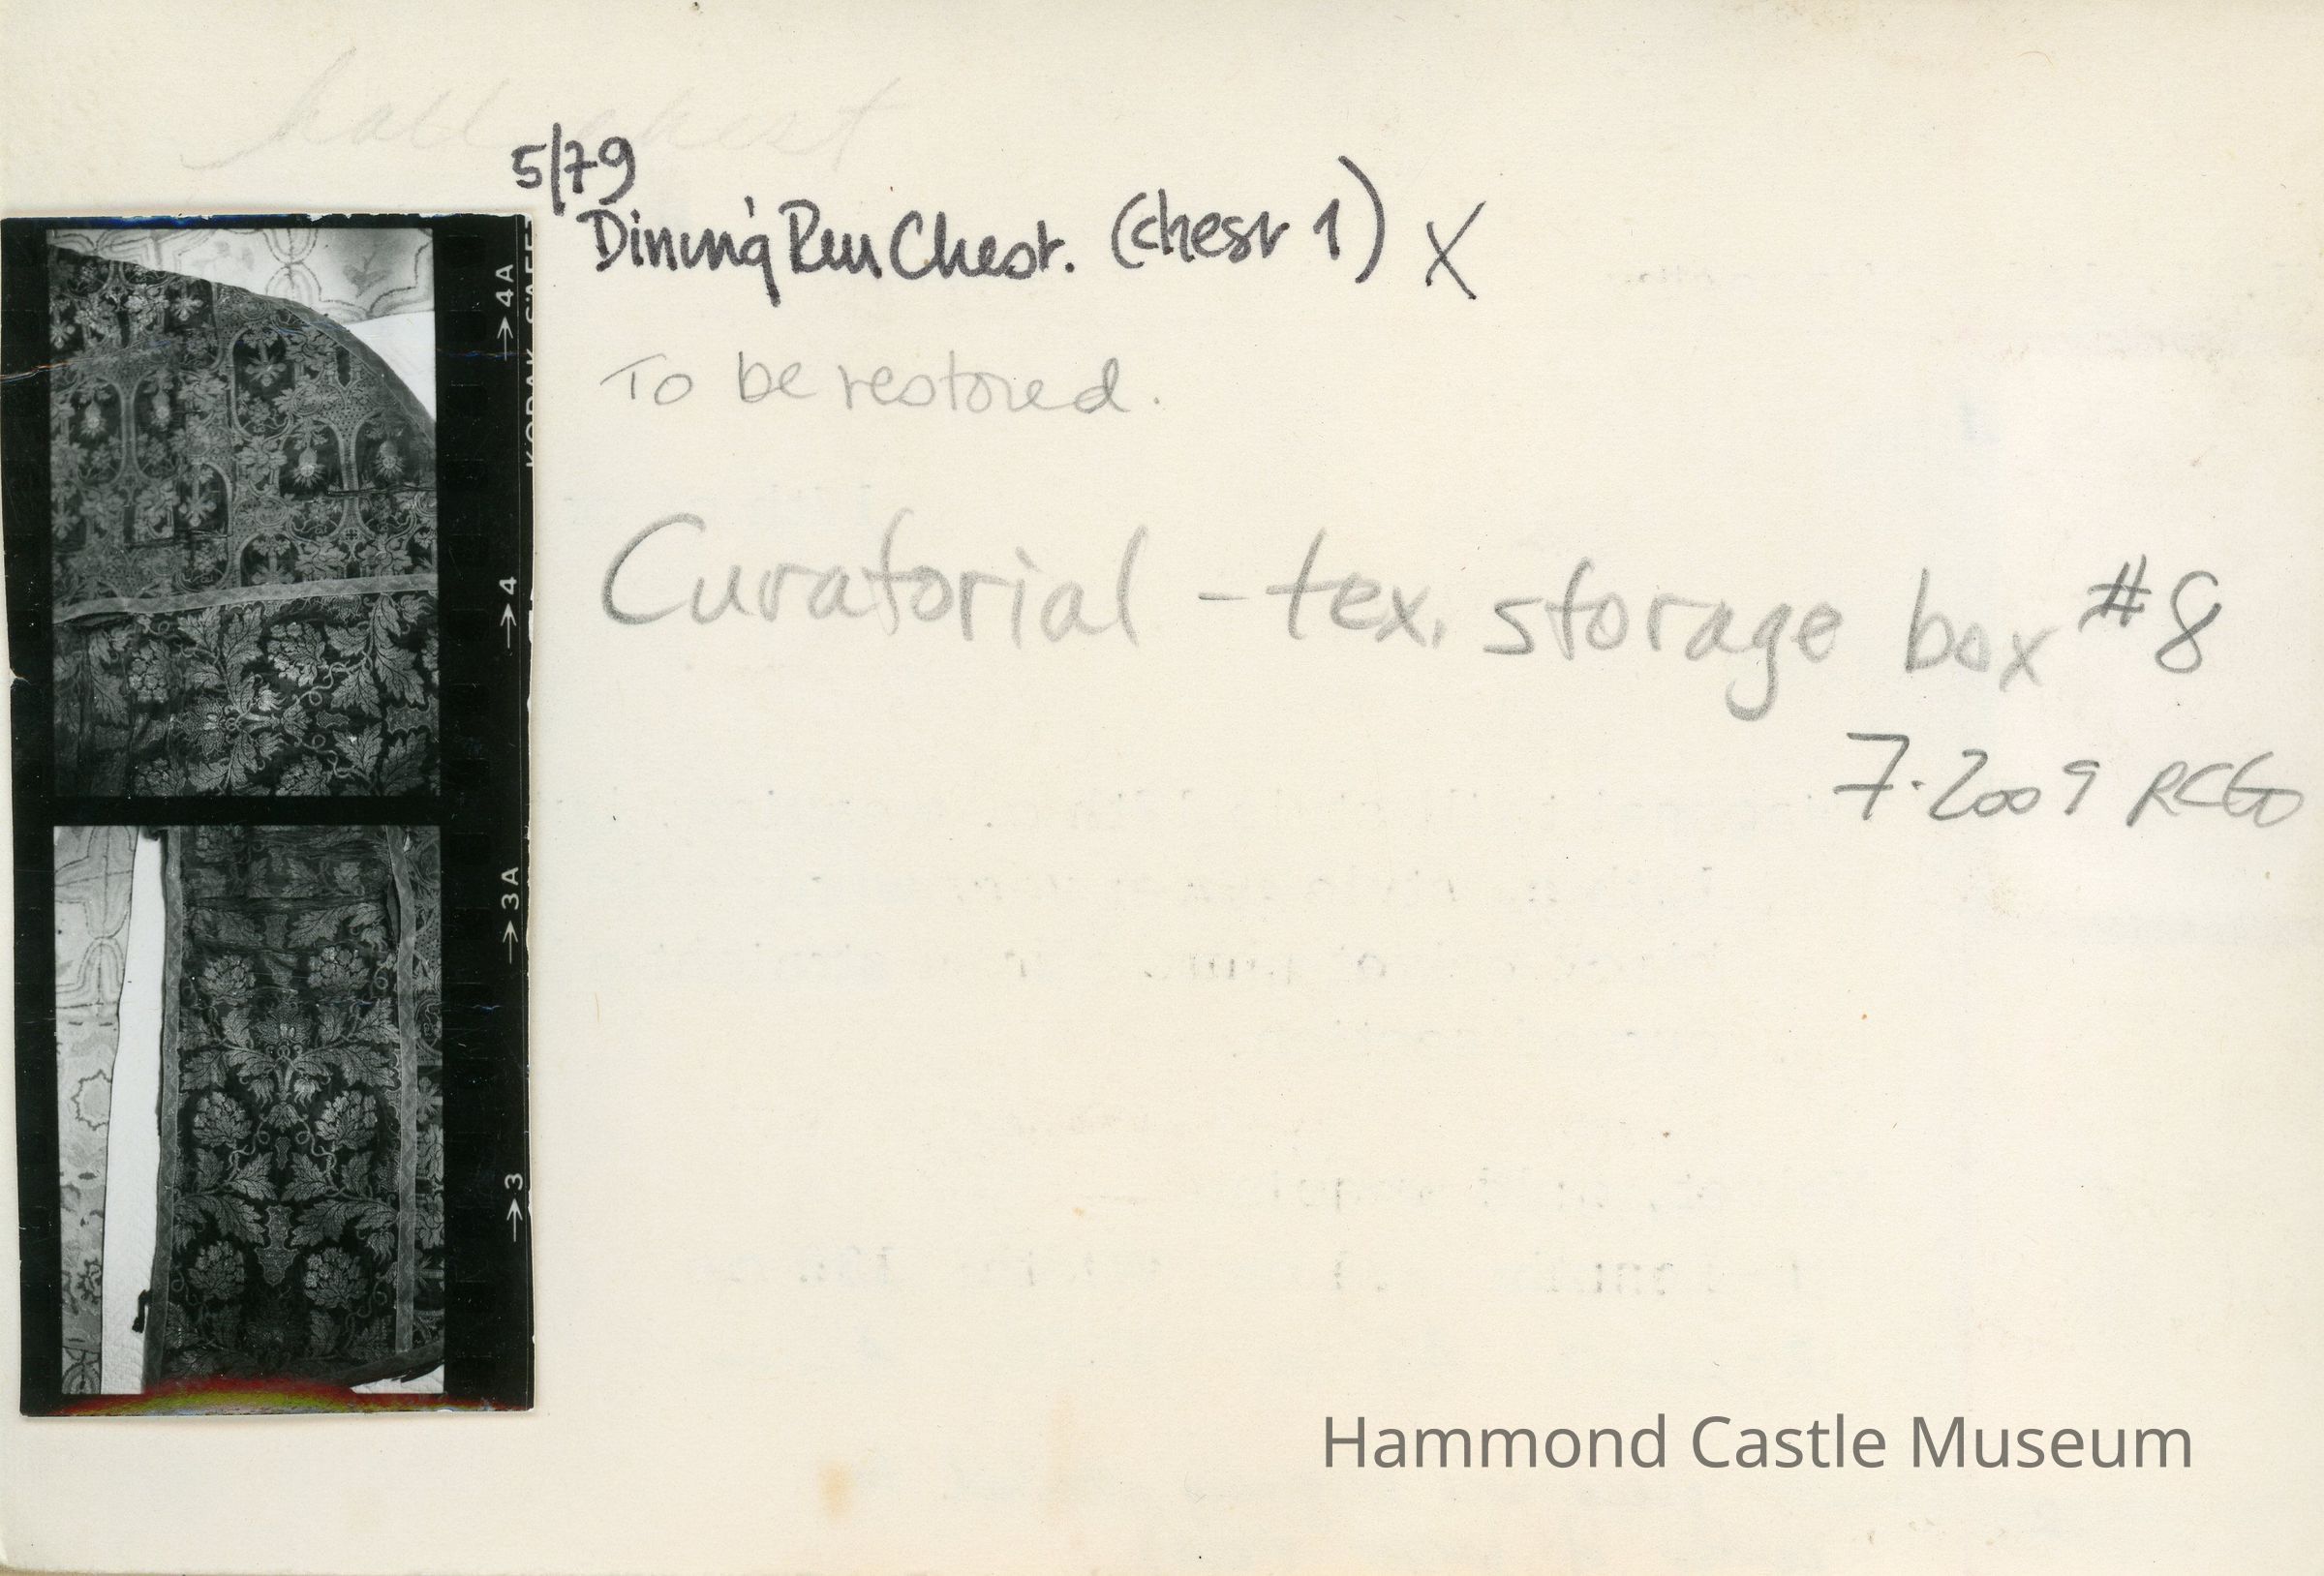 hall chest
5/79
Dining Rm Chest. (chest 1) X
To be restored.
Curatorial - tex. storage box #8
7.2009 RCG
→4A
KODAK SAFE
→4
→3A
→3
Hammond Castle Museum